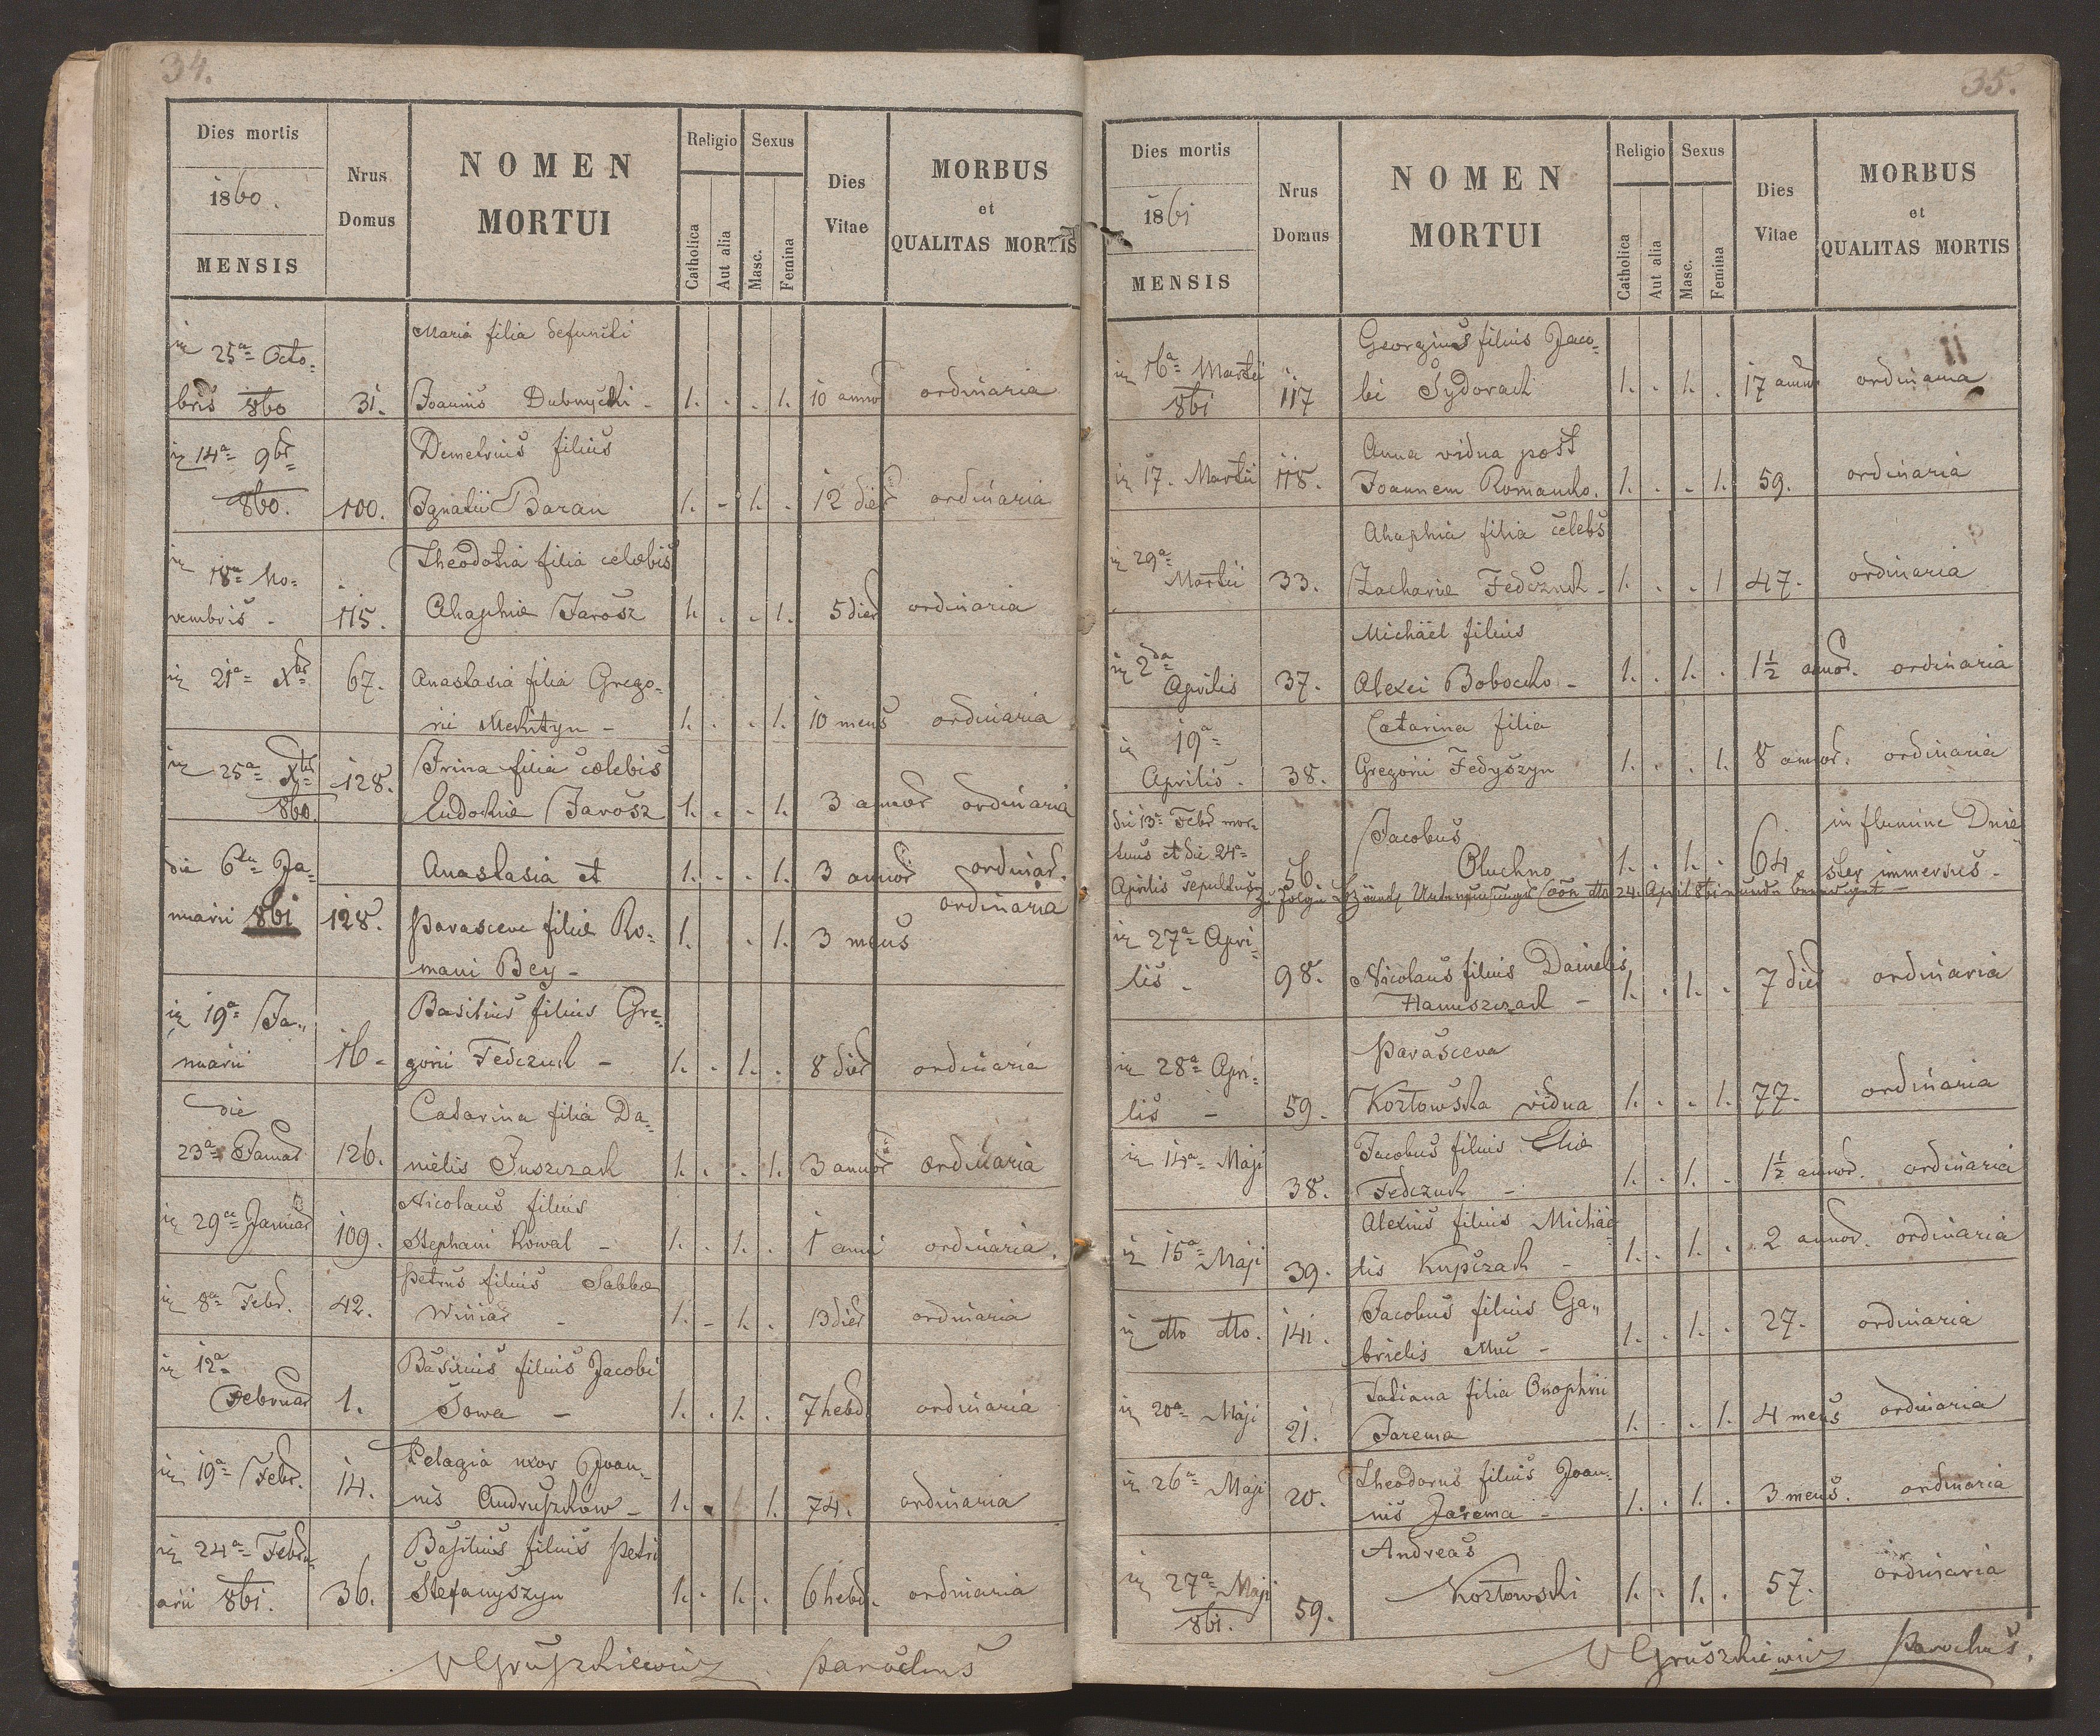 34.
Dies mortis
1860.
MENSIS
Nrus Domus
NOMEN
MORTUI
Religio
Sexus
Catholica
Aut alia
Masc.
Femina
Dies Vitae
MORBUS
et
QUALITAS MORTIS
Maria filia defuncti
in 25a Octo=
bris 860 31. Joannis Dubnycki - 1. . . 1. 10 annor ordinaria
in 14a 9br Demetrius filius
860. 100. Ignatii Baran 1. - 1. . 12 dier ordinaria
in 18va No= Theodosia filia celebis
vembris - 115. Ahaphiae Jarosz 1. . . 1. 5 dier ordinaria
in 21a Xbr 67. Anastasia filia Grego=
rii Mekityn - 1. . . 1. 10 mens ordinaria
in 25a Xbr 128. Irina filia coelebis
860. Eudokiae Jarosz 1. . . 1. 3 annor ordinaria
die 6ta Ja= Anastasia et 1. . . 1. 3 annor ordinar.
nuarii 861 128. Parasceve filiae Ro= 1. . 1. 3 mens ordinaria
mani Bey -
in 19a Ja= Basilius filius Gre=
nuarii 16 - gorii Fedczuk - 1. . 1. . 8 dier ordinaria
die Catarina filia Da=
23a Januar 126. nielis Juszczak 1. . . 1. 3 annor ordinaria
in 29a Januar 109. Nicolaus filius
Stephani Kowal - 1. . 1. . 1 anni ordinaria.
in 8a Febr. 42. Petrus filius Sabbae
Winiar - 1. - 1. . 13 dier ordinaria
in 12a Basilius filius Jacobi
Februar 1. Sowa - 1. . 1. . 7 hebd. ordinaria
in 19a Febr. 14. Pelagia uxor Joan=
nis Andruszkow - 1. . 1. 74. ordinaria
in 24a Febru= Basilius filius Petri
arii 861. 36. Stefanyszyn 1. . 1. . 6 hebd. ordinaria
VGruszkiewicz parochus
35.
Dies mortis
1861
MENSIS
Nrus Domus
NOMEN
MORTUI
Religio
Sexus
Catholica
Aut alia
Masc.
Femina
Dies Vitae
MORBUS
et
QUALITAS MORTIS
in 16a Martii Georgius filius Jaco=
861 117 bi Sydorach 1. . 1. . 17 annor ordinaria
Anna vidua post
in 17. Martii 118. Joannem Romanko. 1. . . 1. 59. ordinaria
in 29a Ahaphia filia celebs
Martii 33. Zachariae Fedczuk - 1. . . 1 47. ordinaria
in 2da Michäel filius
Aprilis 37. Alexei Bobecko - 1. . 1. . 1½ annor. ordinaria
in 19a Catarina filia
Aprilis. 38. Gregorii Fedyszyn 1. . . 1. 8 annor. ordinaria
die 13a Febr mor= Jacobus in flumine Dnie=
tuus et die 24a 56. Oluchno 1. . 1. . 64. ster immersus -
Aprilis sepultus
in 27a Apri=
lis - 98. Nicolaus filius Danielis
Hanuszczak - 1. . 1. . 7 dier ordinaria
in 28a Apri= Parasceva
lis - 59. Kozłowska vidua 1. . . 1. 77. ordinaria
in 14a Maji Jacobus filius Eliae
38. Fedczuk - 1. . 1. . 1½ annor. ordinaria
in 15a Maji Alexius filius Michäe=
39. lis Kupczak - 1. . 1. . 2 annor. ordinaria
in dto dto. 141. Jacobus filius Ga=
brielis Muc - 1. . 1. . 27. ordinaria
in 20a Maji Tatiana filia Onophrii
21. Jarema 1. . . 1. 4 mens ordinaria
in 26a Maji Theodorus filius Joan=
20. nis Jarema - 1. . 1. . 3 mens. ordinaria
in 27a Maji Andreas
861. 59. Kozłowski 1. . 1. . 57. ordinaria
VGruszkiewicz Parochus.